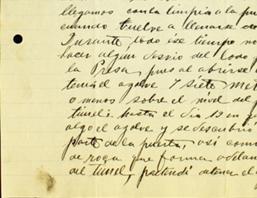 llegamos con la limpia a la pu
cuando vuelve a llenarse de
Durante todo ese tiempo no
hacer algun del lodo
la Presa, pues al abrirse
tenia el azolve 7 siete met
o menos sobre el nivel del p
tunel. hasta el Dia 12 en
algo el azolve y se descubrió
parte de la puerta, asi com
de roca que forma
del tunel, pretendi